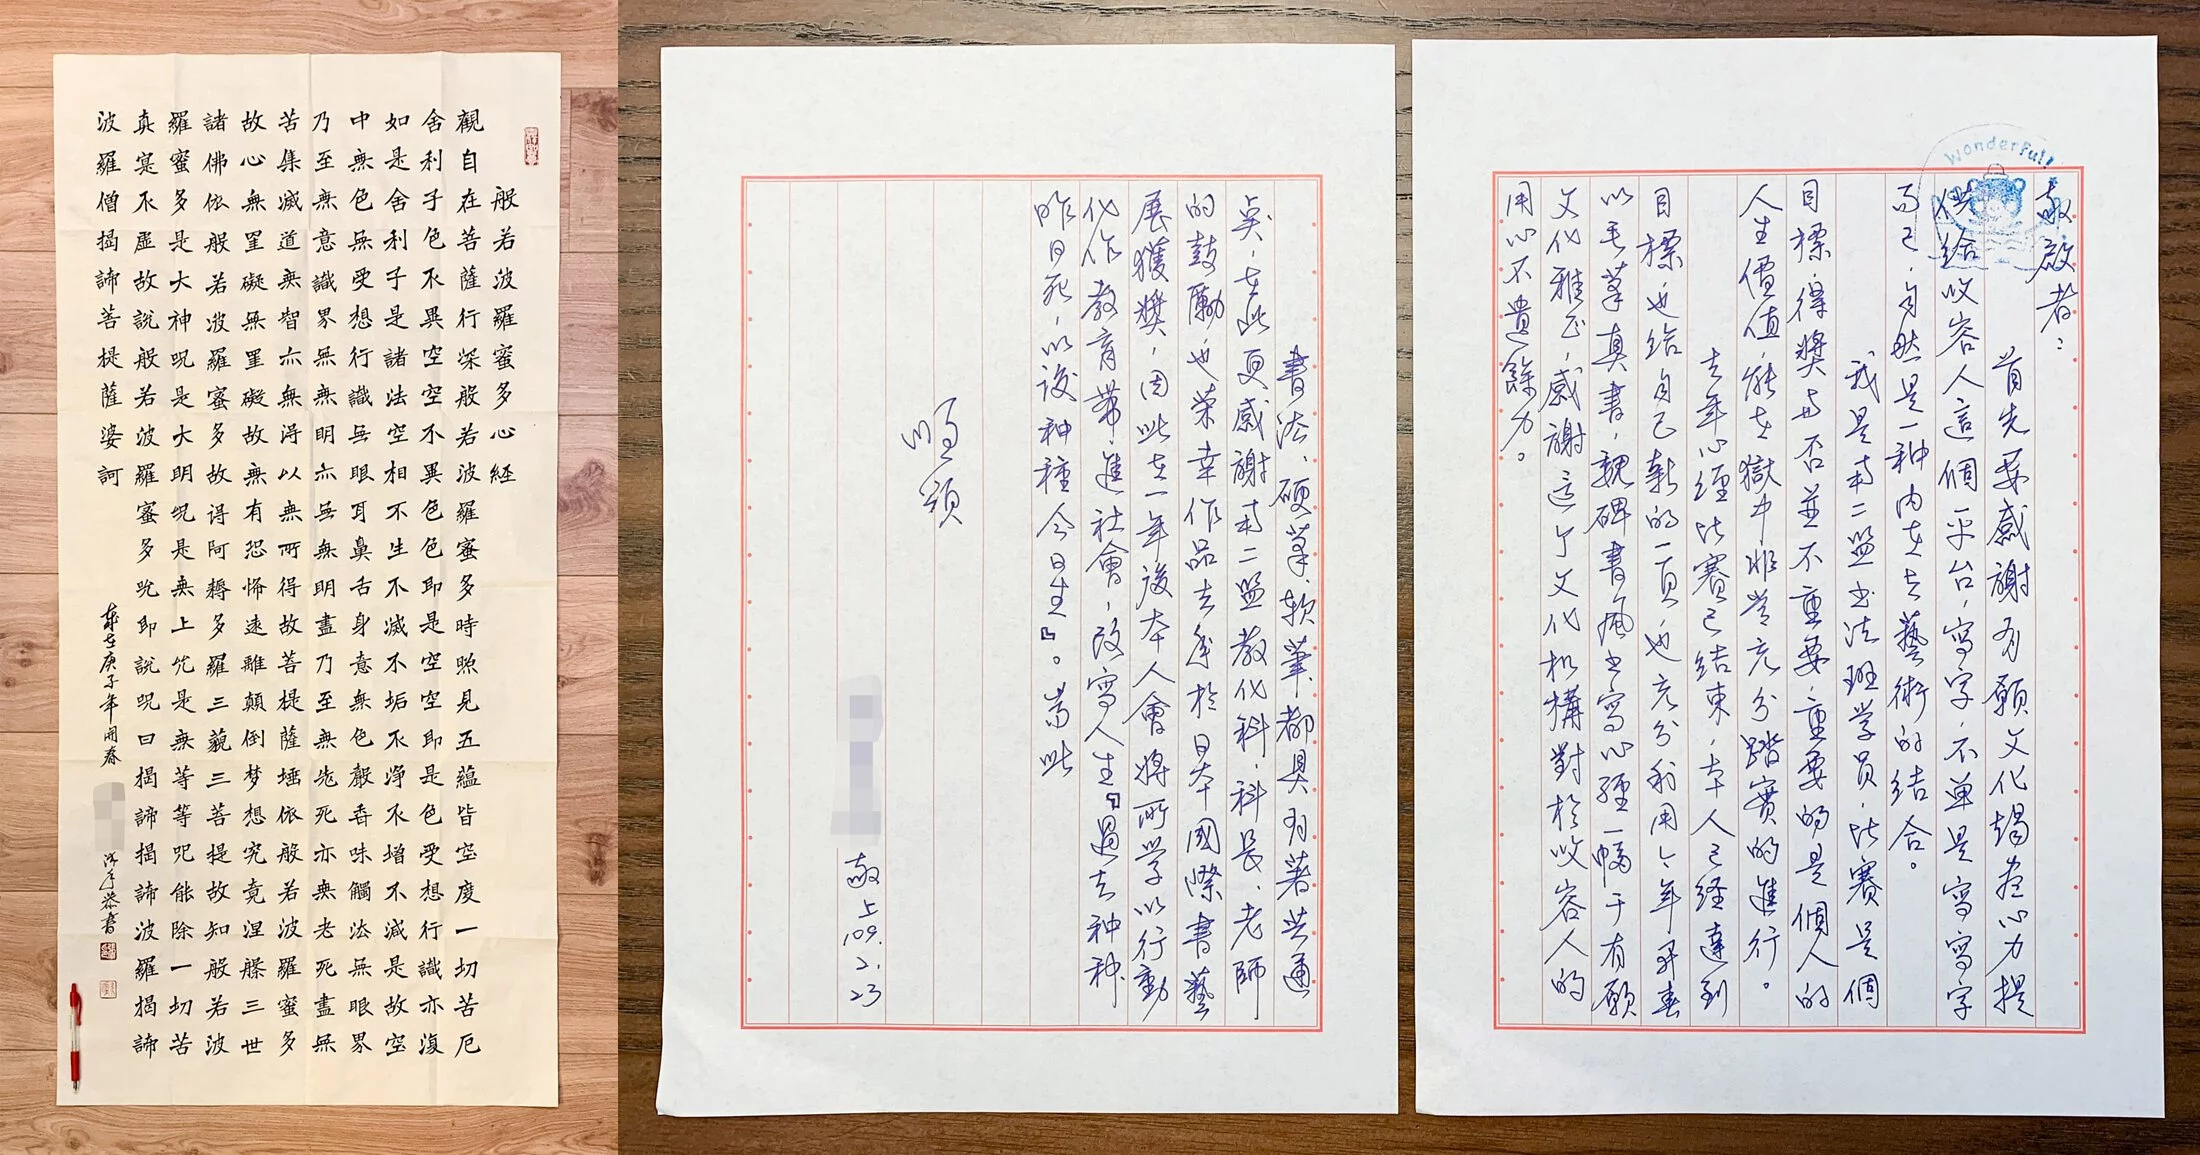 般若波羅蜜多心経
觀自在菩薩行深般若波羅蜜多時照見五蘊皆空度一切苦厄
舍利子色不異空空不異色色即是空空即是色受想行識亦復
如是舍利子是諸法空相不生不滅不垢不净不增不減是故空
中無色無受想行識無眼耳鼻舌身意無色聲香味觸法無眼界
乃至無意識界無無明亦無無明盡乃至無老死亦無老死盡無
苦集滅道無智亦無得以無所得故菩提薩埵依般若波羅蜜多
故心無罣礙無罣礙故無有恐怖遠離顛倒梦想究竟涅槃三世
諸佛依般若波羅蜜多故得阿耨多羅三藐三菩提故知般若波
羅蜜多是大神呪是大明呪是無上呪是無等等呪能除一切苦
真寔不虛故說般若波羅蜜多呪即說呪曰揭諦揭諦波羅揭諦
波羅僧揭諦菩提薩婆訶
歲在庚子年開春
恭書
Wonderful!
敬啟者：
首先要感謝有願文化竭盡心力提
供給收容人這個平台，寫字，不單是寫寫字
而已，自然是一种内在与藝術的结合。
我是南二監书法班学员，比賽是個
目標，得獎与否並不重要，重要的是個人的
人生價值，能在獄中非常充分踏實的進行。
去年心經比賽已结束，本人已经達到
目標也给自己新的一頁，也充分利用今年开春
以毛筆真書，魏碑書風书寫心經一幅于有願
文化雅正，感謝這个文化机構對於收容人的
用心不遺餘力。
書法、硬筆、軟筆，都具有著共通
奌，在此更感謝南二監教化科，科長、老師
的鼓勵，也榮幸作品去年於日本國際書藝
展獲獎，因此在一年後本人會將所学以行動
化作教育带進社會，改寫人生『過去种种
昨日死，以後种種今日生』。耑此
順頌
敬上 109.2.23